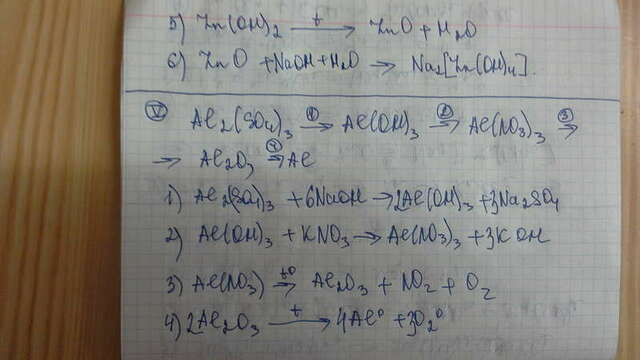 5) Zn(OH)₂ —t→ ZnO + H₂O
6) ZnO + NaOH + H₂O → Na₂[Zn(OH)₄].
Ⓥ Al₂(SO₄)₃ —①→ Al(OH)₃ —②→ Al(NO₃)₃ —③→
→ Al₂O₃ —④→ Al
1) Al₂(SO₄)₃ + 6NaOH → 2Al(OH)₃ + 3Na₂SO₄
2) Al(OH)₃ + KNO₃ → Al(NO₃)₃ + 3KOH
3) Al(NO₃) —t°→ Al₂O₃ + NO₂ + O₂
4) 2Al₂O₃ —t→ 4Al⁰ + 3O₂⁰